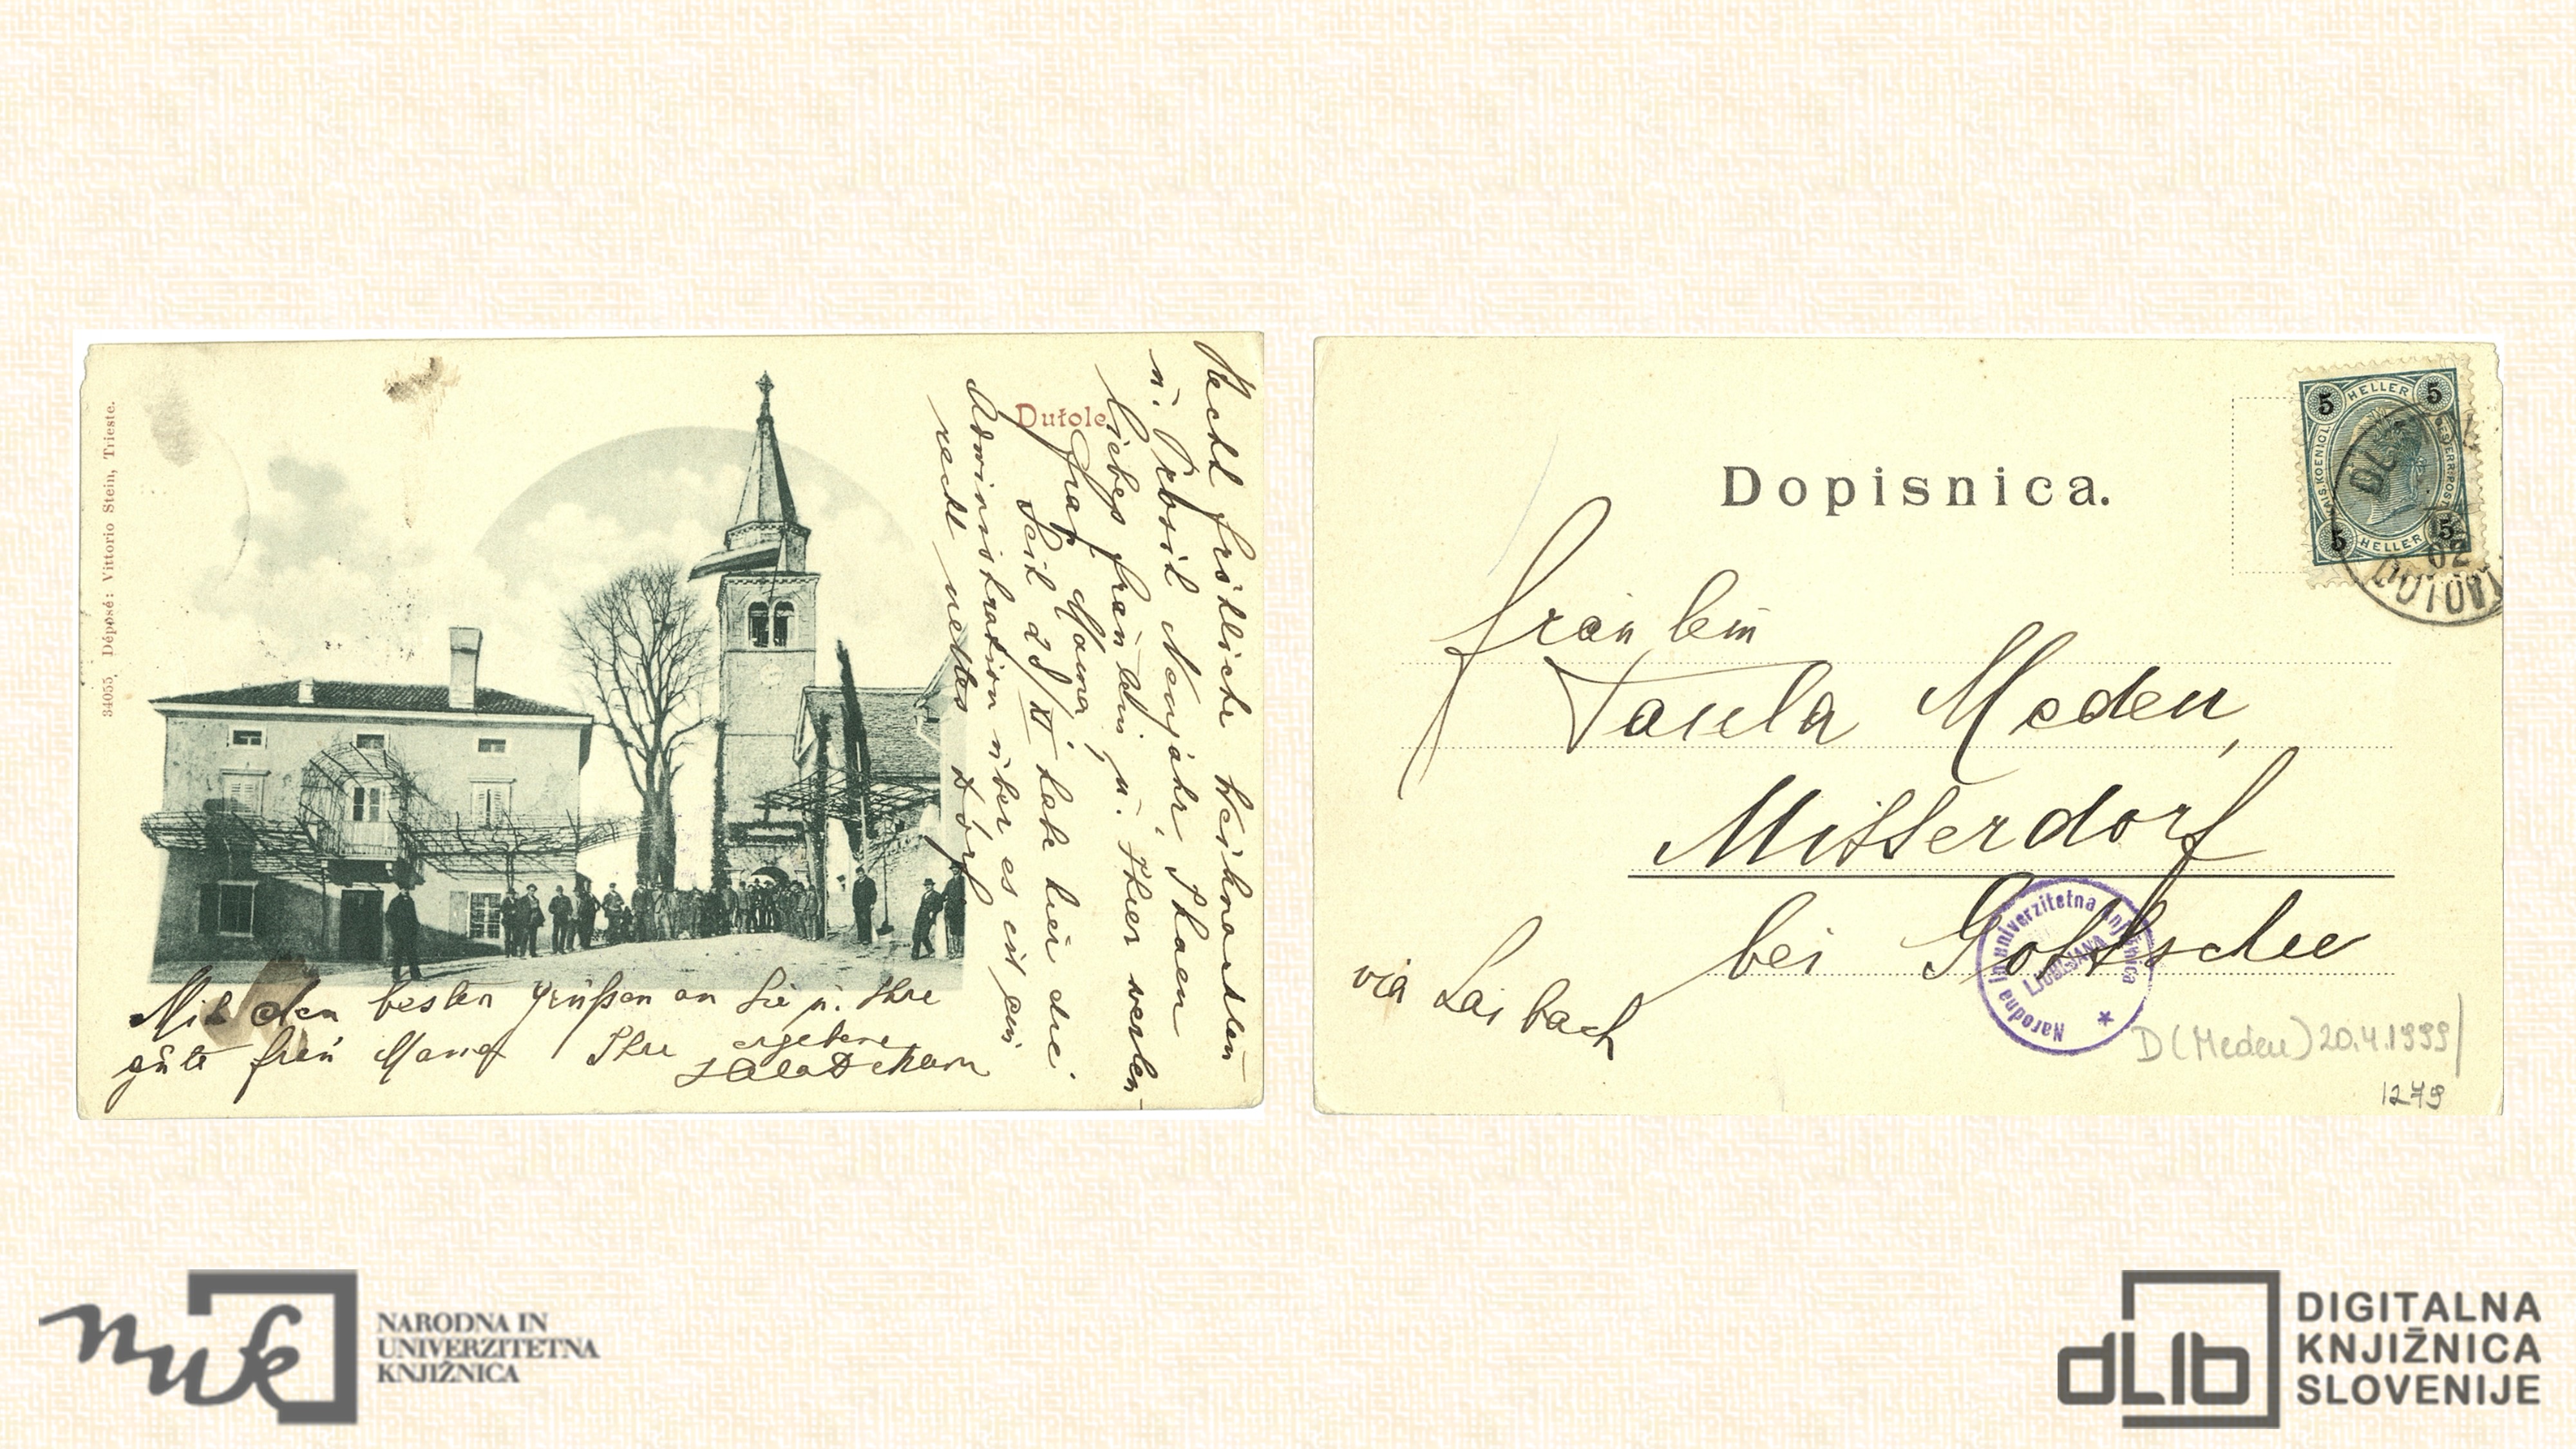 34055 Déposé: Vittorio Stein, Trieste.
Dutole
Recht fröhliche Weihnachten
u. Prosit Neujahr, Ihnen
liebes Fräulein, u. Ihrer werten
Frau Mama;
Seit 28/XI habe hier die
Administration über es ist ein
recht nettes Dorf
Mit den besten Grüßen an Sie u. Ihre
gute Frau Mama Ihre ergebene
Dopisnica.
5 HELLER 5
5 HELLER 5
02
Fräulein
Paula Meden,
Mitterdorf
bei Gottschee
via Laibach
Narodna in univerzitetna knjižnica
LJUBLJANA
D (Meden) 20.4.1999
1279
nuk
NARODNA IN
UNIVERZITETNA
KNJIŽNICA
dLib
DIGITALNA
KNJIŽNICA
SLOVENIJE